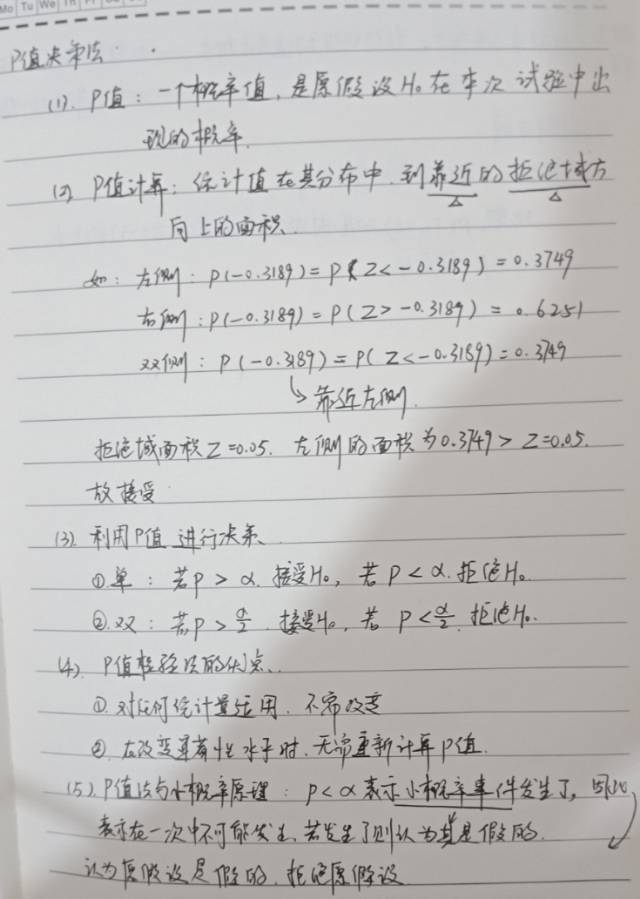 Mo Tu We Th Fr
P值决策法
(1). P值：一个概率值，是原假设H₀在本次试验中出
现的概率.
(2) P值计算：统计值在其分布中，到靠近的拒绝域方
向上的面积.
如：左侧：P(-0.3189)=P(Z<-0.3189)=0.3749
右侧：P(-0.3189)=P(Z>-0.3189)=0.6251
双侧：P(-0.3189)=P(Z<-0.3189)=0.3749
↳靠近左侧.
拒绝域面积Z=0.05. 左侧的面积为0.3749>Z=0.05.
故接受
(3). 利用P值进行决策、
①单：若P>α. 接受H₀，若P<α. 拒绝H₀.
②.双：若P>α/2. 接受H₀，若P<α/2. 拒绝H₀.
(4). P值检验法的优点、
①.对任何统计量适用. 不需改变
②.在改变显著性水平时. 无需重新计算P值.
(5). P值法与小概率原理：P<α表示小概率事件发生了，
表示在一次中不可能发生. 若发生了则认为其是假的.
认为原假设是假的. 拒绝原假设